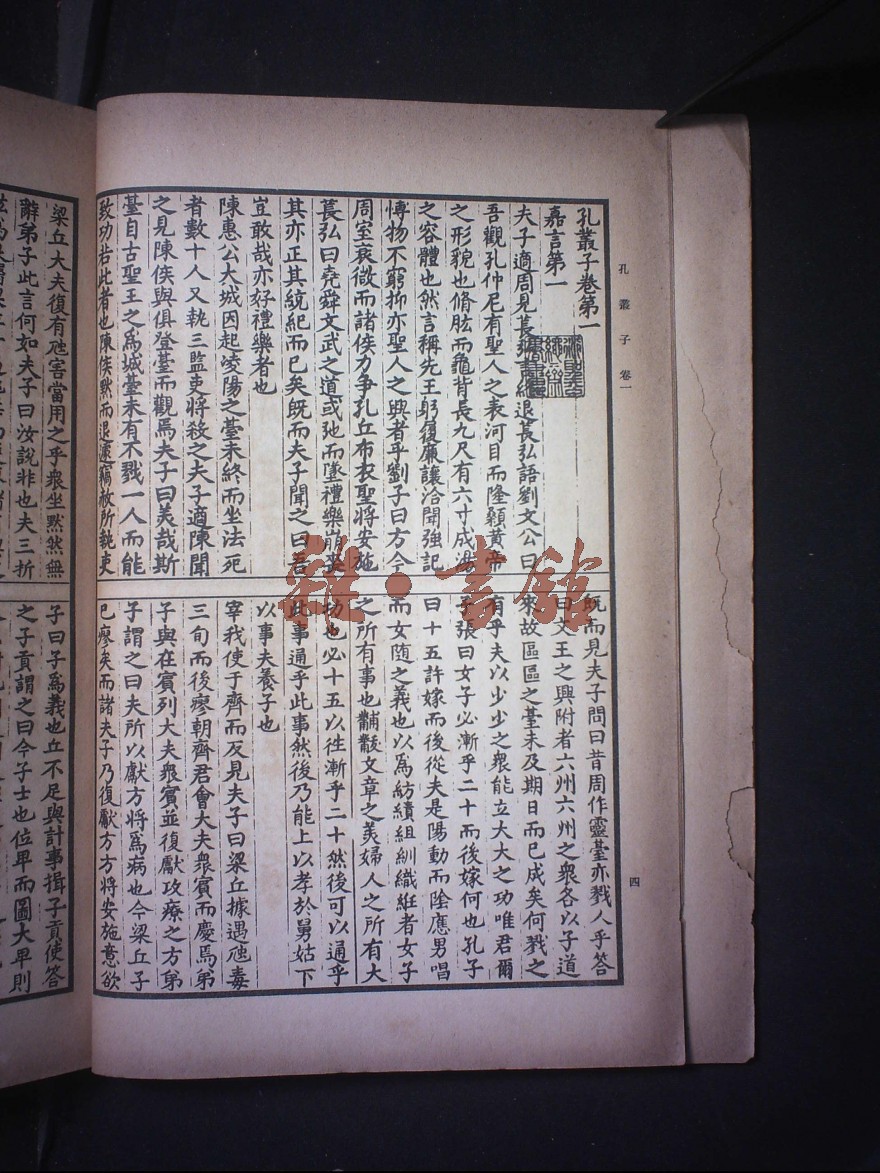 孔叢子 卷一
四
孔叢子卷第一
嘉言第一
夫子適周見萇弘言終退萇弘語劉文公曰
吾觀孔仲尼有聖人之表河目而隆顙黃帝
之形貌也脩肱而龜背長九尺有六寸成湯
之容體也然言稱先王躬履廉讓洽聞強記
愽物不窮抑亦聖人之興者乎劉子曰方今
周室衰微而諸侯力爭孔丘布衣聖將安施
萇弘曰堯舜文武之道或弛而墜禮樂崩喪
其亦正其統紀而已矣旣而夫子聞之曰吾
豈敢哉亦好禮樂者也
陳惠公大城因起凌陽之臺未終而坐法死
者數十人又執三監吏將殺之夫子適陳聞
之見陳侯與俱登臺而觀焉夫子曰美哉斯
臺自古聖王之爲城臺未有不戮一人而能
致功若此者也陳侯然而退遽竊赦所執吏
旣而見夫子問曰昔周作靈臺亦戮人乎答
曰文王之興附者六州六州之衆各以子道
來故區區之臺未及期日而已成矣何戮之
有乎夫以少少之衆能立大大之功唯君爾
子張曰女子必漸乎二十而後嫁何也孔子
曰十五許嫁而後從夫是陽動而陰應男唱
而女隨之義也以爲紡績組紃織紝者女子
之所有事也黼黻文章之美婦人之所有大
功也必十五以往漸乎二十然後可以通乎
此事通乎此事然後乃能上以孝於舅姑下
以事夫養子也
宰我使于齊而反見夫子曰梁丘據遇虺毒
三旬而後瘳朝齊君會大夫衆賓而慶焉弟
子與在賓列大夫衆賓並復獻攻療之方弟
子謂之曰夫所以獻方將爲病也今梁丘子
已瘳矣而諸夫子乃復獻方方將安施意欲
梁丘大夫復有虺害當用之乎衆坐默然無
辭弟子此言何如夫子曰汝說非也夫三折
子曰子爲義也丘不足與計事揖子貢使答
之子貢謂之曰今子士也位卑而圖大卑則
雜·書館